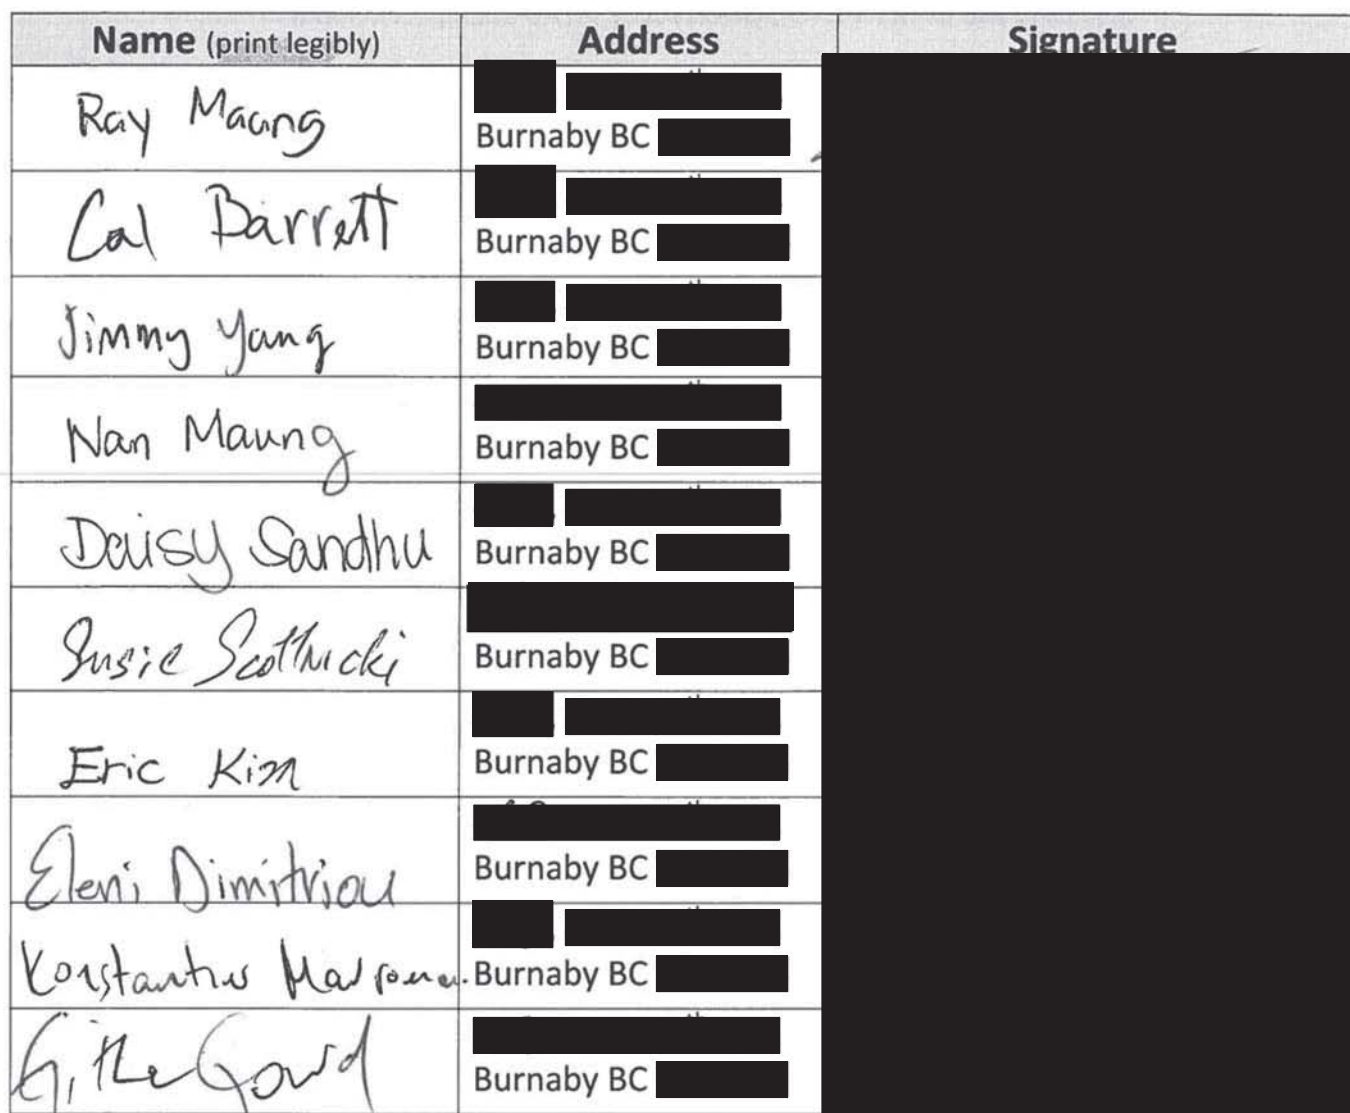 Name (print legibly) Address Signature
Ray Maung
Burnaby BC
Cal Barrett
Burnaby BC
Jimmy Yang
Burnaby BC
Nan Maung
Burnaby BC
Daisy Sandhu
Burnaby BC
Susie Scothicki
Burnaby BC
Eric Kim
Burnaby BC
Eleni Dimitriou
Burnaby BC
Konstantinos
Burnaby BC
Burnaby BC